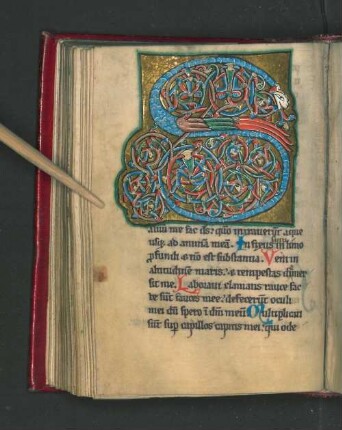 S
aluū me fac ds: quo intrauerūt aque
usq; ad animā meā. Infixus sum in limo
ꝓfundi & nō est substantia. Veni in
altitudinē maris: & tempestas dimer
sit me. Laboraui clamans rauce fac
te sūt fauces mee: defecerūt oculi
mei dū spero ī dm̄ meū. Multiplicati
sūt sup capillos capitis mei: qui ode